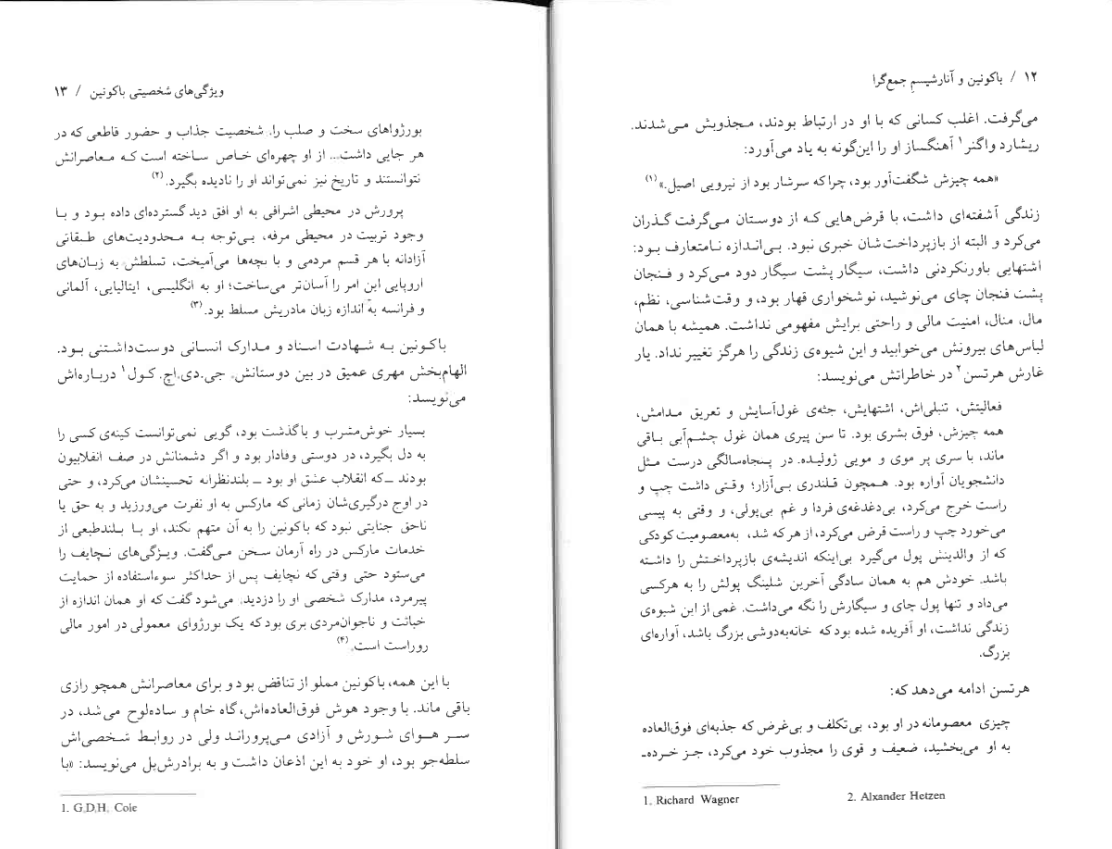 ۱۲ / باکونین و آنارشیسم جمع‌گرا
می‌گرفت. اغلب کسانی که با او در ارتباط بودند، مجذوبش می‌شدند.
ریشارد واگنر۱ آهنگساز او را این‌گونه به یاد می‌آورد:
«همه چیزش شگفت‌آور بود، چرا که سرشار بود از نیرویی اصیل.»(۱)
زندگی آشفته‌ای داشت، با قرض‌هایی که از دوستان می‌گرفت گذران
می‌کرد و البته از بازپرداخت‌شان خبری نبود. بی‌اندازه نامتعارف بود:
اشتهایی باورنکردنی داشت، سیگار پشت سیگار دود می‌کرد و فنجان
پشت فنجان چای می‌نوشید، نوشخواری قهار بود، و وقت‌شناسی، نظم،
مال، منال، امنیت مالی و راحتی برایش مفهومی نداشت. همیشه با همان
لباس‌های بیرونش می‌خوابید و این شیوه‌ی زندگی را هرگز تغییر نداد. یار
غارش هرتسن۲ در خاطراتش می‌نویسد:
فعالیتش، تنبلی‌اش، اشتهایش، جثه‌ی غول‌آسایش و تعریق مدامش،
همه چیزش، فوق بشری بود. تا سن پیری همان غول چشم‌آبی باقی
ماند، با سری پر موی و مویی ژولیده. در پنجاه‌سالگی درست مثل
دانشجویان آواره بود. همچون قلندری بی‌آزار؛ وقتی داشت چپ و
راست خرج می‌کرد، بی‌دغدغه‌ی فردا و غم بی‌پولی، و وقتی به پیسی
می‌خورد چپ و راست قرض می‌کرد، از هر که شد، به‌معصومیت کودکی
که از والدینش پول می‌گیرد بی‌اینکه اندیشه‌ی بازپرداختش را داشته
باشد. خودش هم به همان سادگی آخرین شلینگ پولش را به هرکسی
می‌داد و تنها پول چای و سیگارش را نگه می‌داشت. غمی از این شیوه‌ی
زندگی نداشت، او آفریده شده بود که خانه‌به‌دوشی بزرگ باشد، آواره‌ای
بزرگ.
هرتسن ادامه می‌دهد که:
چیزی معصومانه در او بود، بی‌تکلف و بی‌غرض که جذبه‌ای فوق‌العاده
به او می‌بخشید، ضعیف و قوی را مجذوب خود می‌کرد، جز خرده‌ـ
1. Richard Wagner 2. Alxander Hetzen
ویژگی‌های شخصیتی باکونین / ۱۳
بورژواهای سخت و صلب را. شخصیت جذاب و حضور قاطعی که در
هر جایی داشت... از او چهره‌ای خاص ساخته است که معاصرانش
نتوانستند و تاریخ نیز نمی‌تواند او را نادیده بگیرد.(۲)
پرورش در محیطی اشرافی به او افق دید گسترده‌ای داده بود و با
وجود تربیت در محیطی مرفه، بی‌توجه به محدودیت‌های طبقاتی
آزادانه با هر قسم مردمی و با بچه‌ها می‌آمیخت، تسلطش به زبان‌های
اروپایی این امر را آسان‌تر می‌ساخت؛ او به انگلیسی، ایتالیایی، آلمانی
و فرانسه به اندازه زبان مادریش مسلط بود.(۳)
باکونین به شهادت اسناد و مدارک انسانی دوست‌داشتنی بود.
الهام‌بخش مهری عمیق در بین دوستانش. جی.دی.اچ. کول۱ درباره‌اش
می‌نویسد:
بسیار خوش‌مشرب و باگذشت بود، گویی نمی‌توانست کینه‌ی کسی را
به دل بگیرد، در دوستی وفادار بود و اگر دشمنانش در صف انقلابیون
بودند ــ که انقلاب عشق او بود ــ بلندنظرانه تحسینشان می‌کرد، و حتی
در اوج درگیری‌شان زمانی که مارکس به او نفرت می‌ورزید و به حق یا
ناحق جنایتی نبود که باکونین را به آن متهم نکند، او با بلندطبعی از
خدمات مارکس در راه آرمان سخن می‌گفت. ویژگی‌های نچایف را
می‌ستود حتی وقتی که نچایف پس از حداکثر سوءاستفاده از حمایت
پیرمرد، مدارک شخصی او را دزدید. می‌شود گفت که او همان اندازه از
خباثت و ناجوان‌مردی بری بود که یک بورژوای معمولی در امور مالی
روراست است.(۴)
با این همه، باکونین مملو از تناقض بود و برای معاصرانش همچو رازی
باقی ماند. با وجود هوش فوق‌العاده‌اش، گاه خام و ساده‌لوح می‌شد، در
سر هوای شورش و آزادی می‌پروراند ولی در روابط شخصی‌اش
سلطه‌جو بود، او خود به این اذعان داشت و به برادرش‌پل می‌نویسد: «با
1. G.D.H. Cole